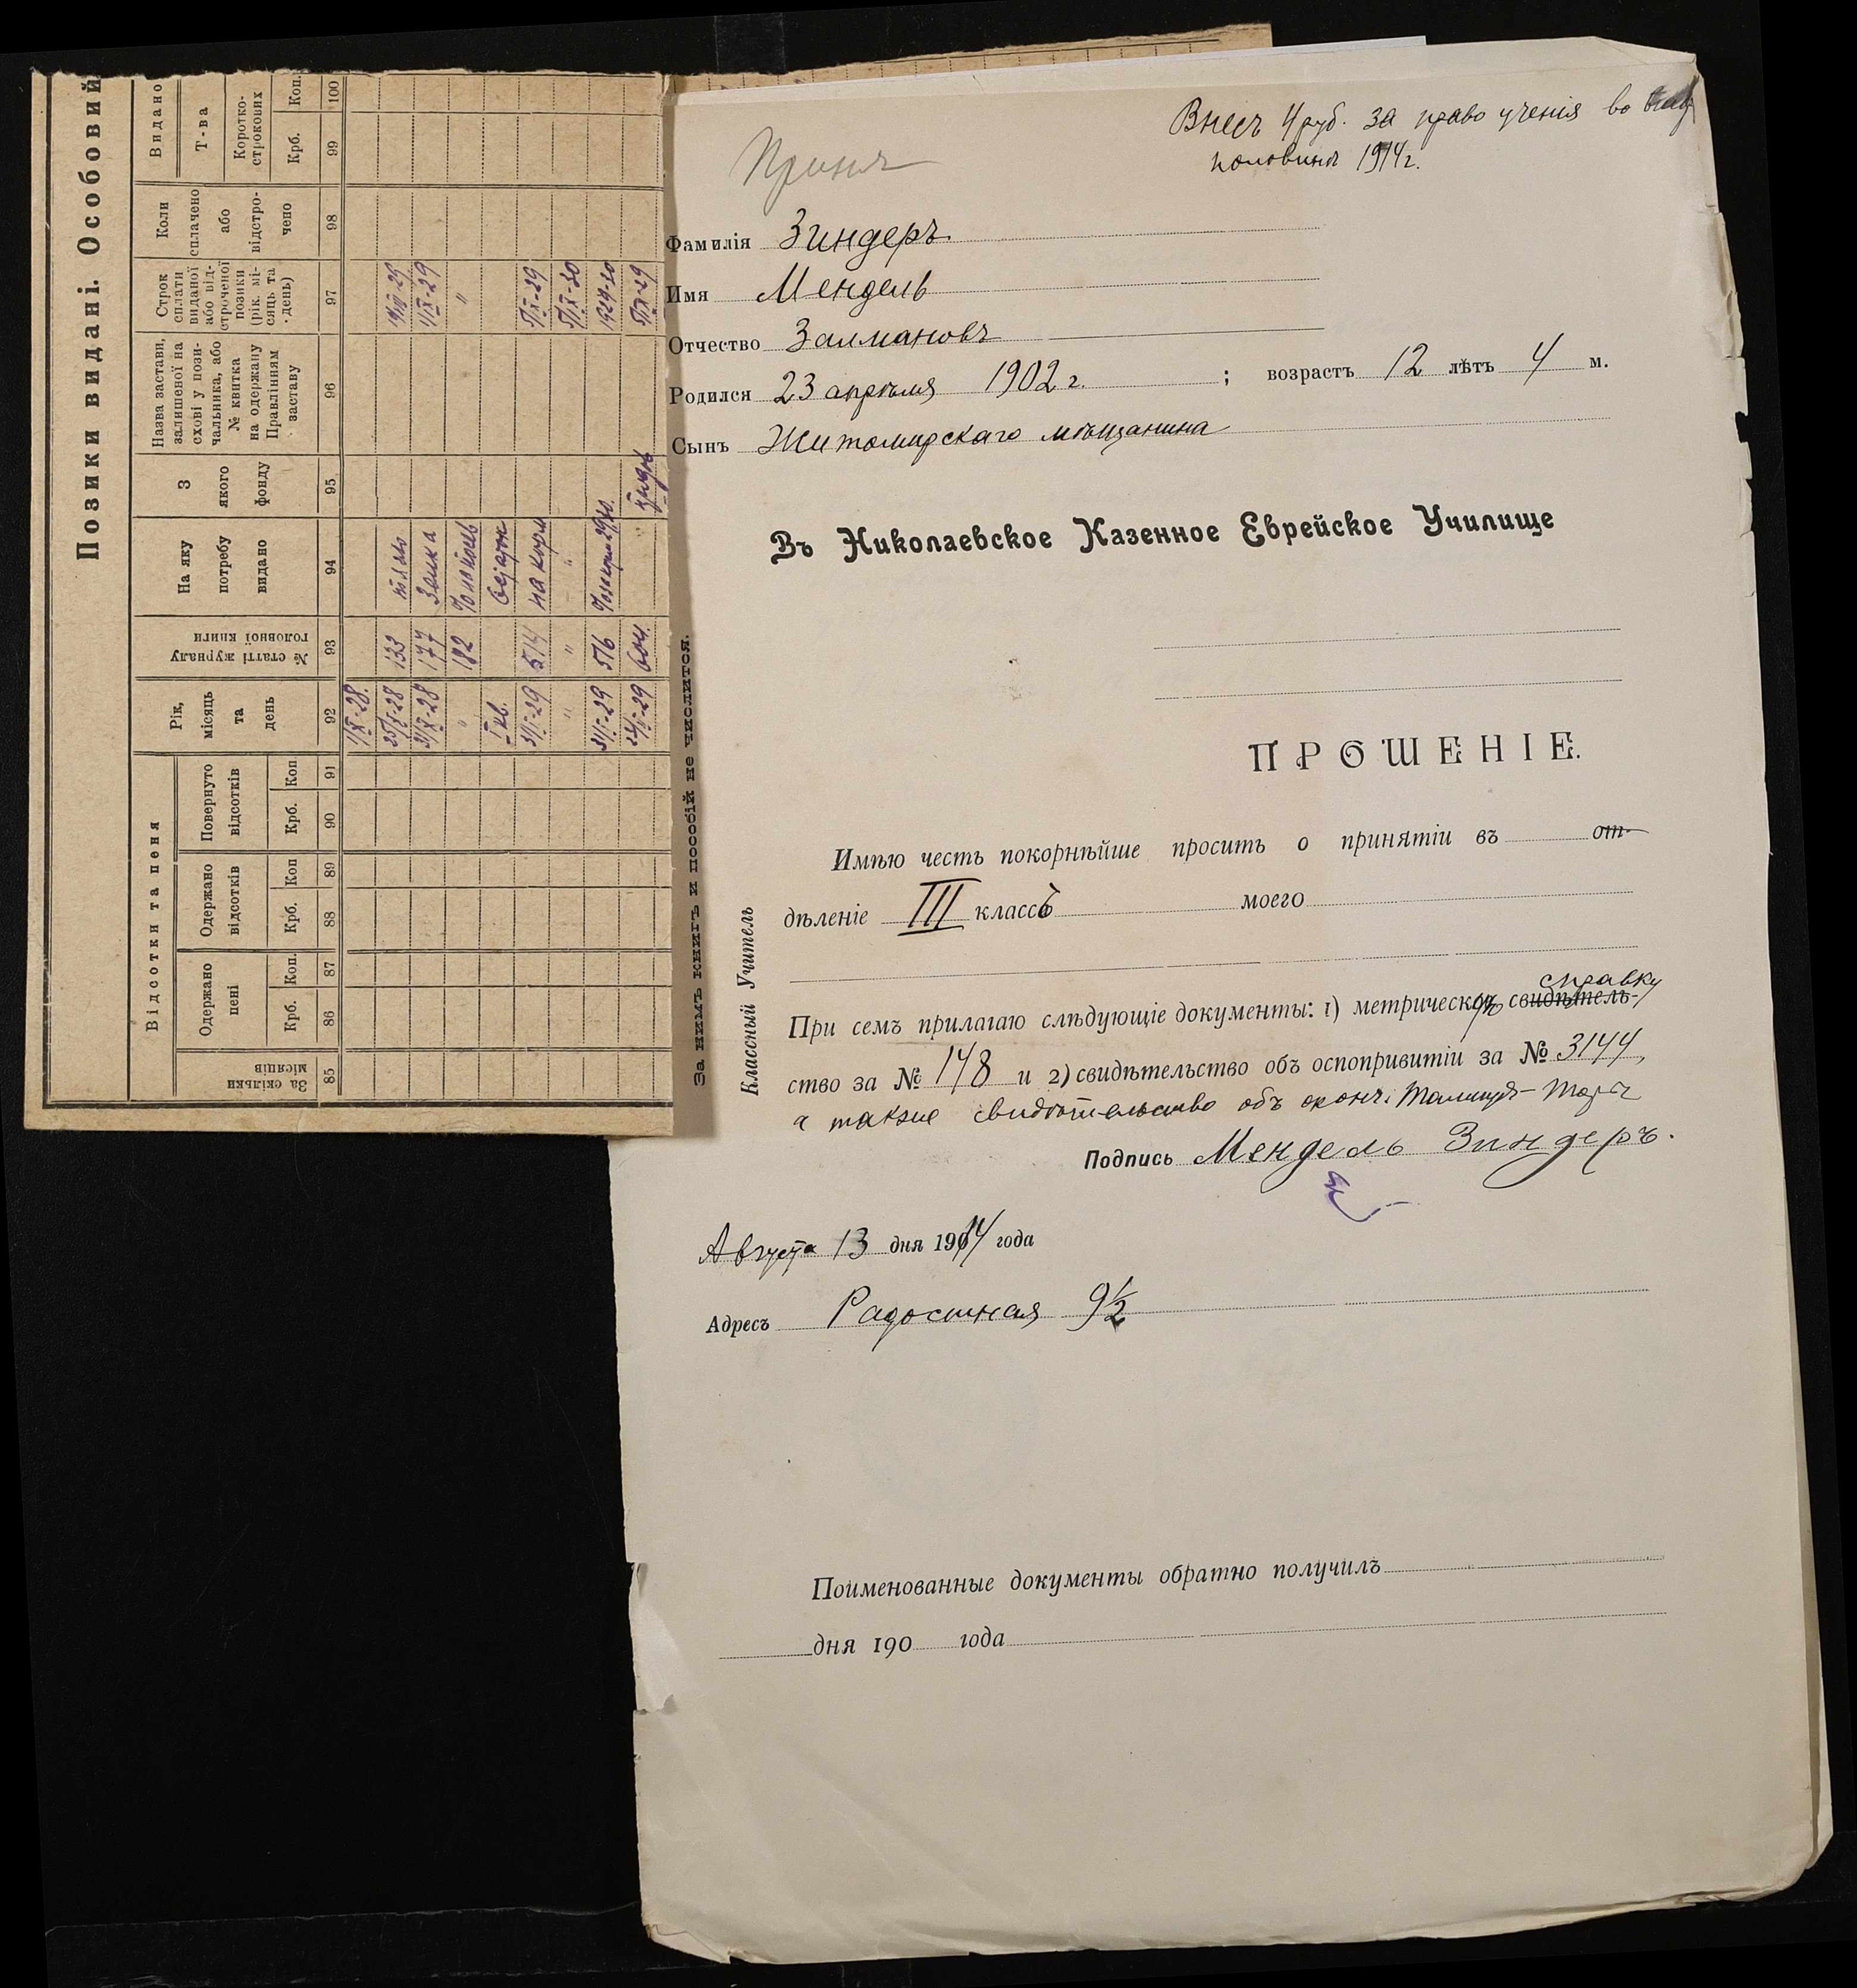 Позики видані. Особовий
Відсотки та пеня
Видано
За скільки місяців
Одержано пені
Одержано відсотків
Повернуто відсотків
Рік, місяць та день
№ статті журналу головної книги
На яку потребу видано
З якого фонду
Назва застави, залишеної на схові у пози-чальника, або № квитка на одержану Правлінням заставу
Строк сплати виданої або від-строченої позики (рік, мі-сяць та день)
Коли сплачено або відстро-чено
Т-ва
Коротко-строкових
Крб. Коп. Крб. Коп Крб. Коп Крб. Коп.
85 86 87 88 89 90 91 92 93 94 95 96 97 98 99 100
1/X-28.
25/X-28 133
31/X-28 177 1/IX-29
" 182 "
31/I-29 514 на корм 5/IX-29
" " 5/IX-30
31/I-29 516
604
За нимъ книгъ и пособій не числится.
Классный Учитель
Внесъ 4 руб. за право ученія во
половинѣ 1914 г.
Принят
Фамилія Зиндеръ
Имя Мендель
Отчество Залмановъ
Родился 23 апрѣля 1902 г. ; возрастъ 12 лѣтъ 4 м.
Сынъ Житомирскаго мѣщанина
Въ Николаевское Казенное Еврейское Училище
ПРОШЕНІЕ.
Имѣю честь покорнѣйше просить о принятіи въ от-
дѣленіе III классѣ моего
справку
При семъ прилагаю слѣдующіе документы: 1) метрическую свидѣтель-
ство за № 148 и 2) свидѣтельство объ оспопривитіи за № 3144,
а также свидѣтельство объ оконч. Талмудъ-Торы
Подпись Мендель Зиндеръ.
Августа 13 дня 1914 года
Адресъ Радостная 9½
Поименованные документы обратно получилъ
дня 190 года